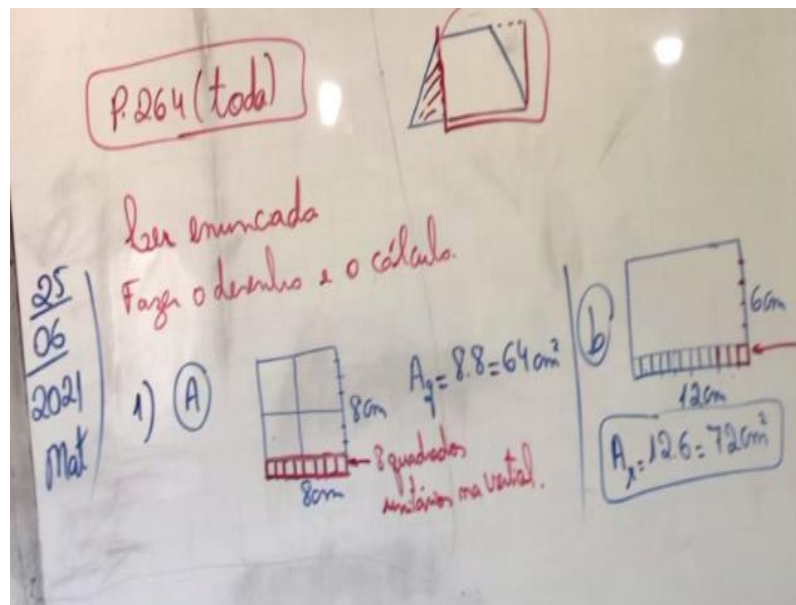 P.264 (toda)
Ler enuncada
Fazer o desenho e o cálculo.
25
06
2021
Mat
1) A
8cm
8cm
A_q = 8.8 = 64 cm²
8 quadrados
unitários na vertical.
b
6cm
12cm
A_r = 12.6 = 72cm²